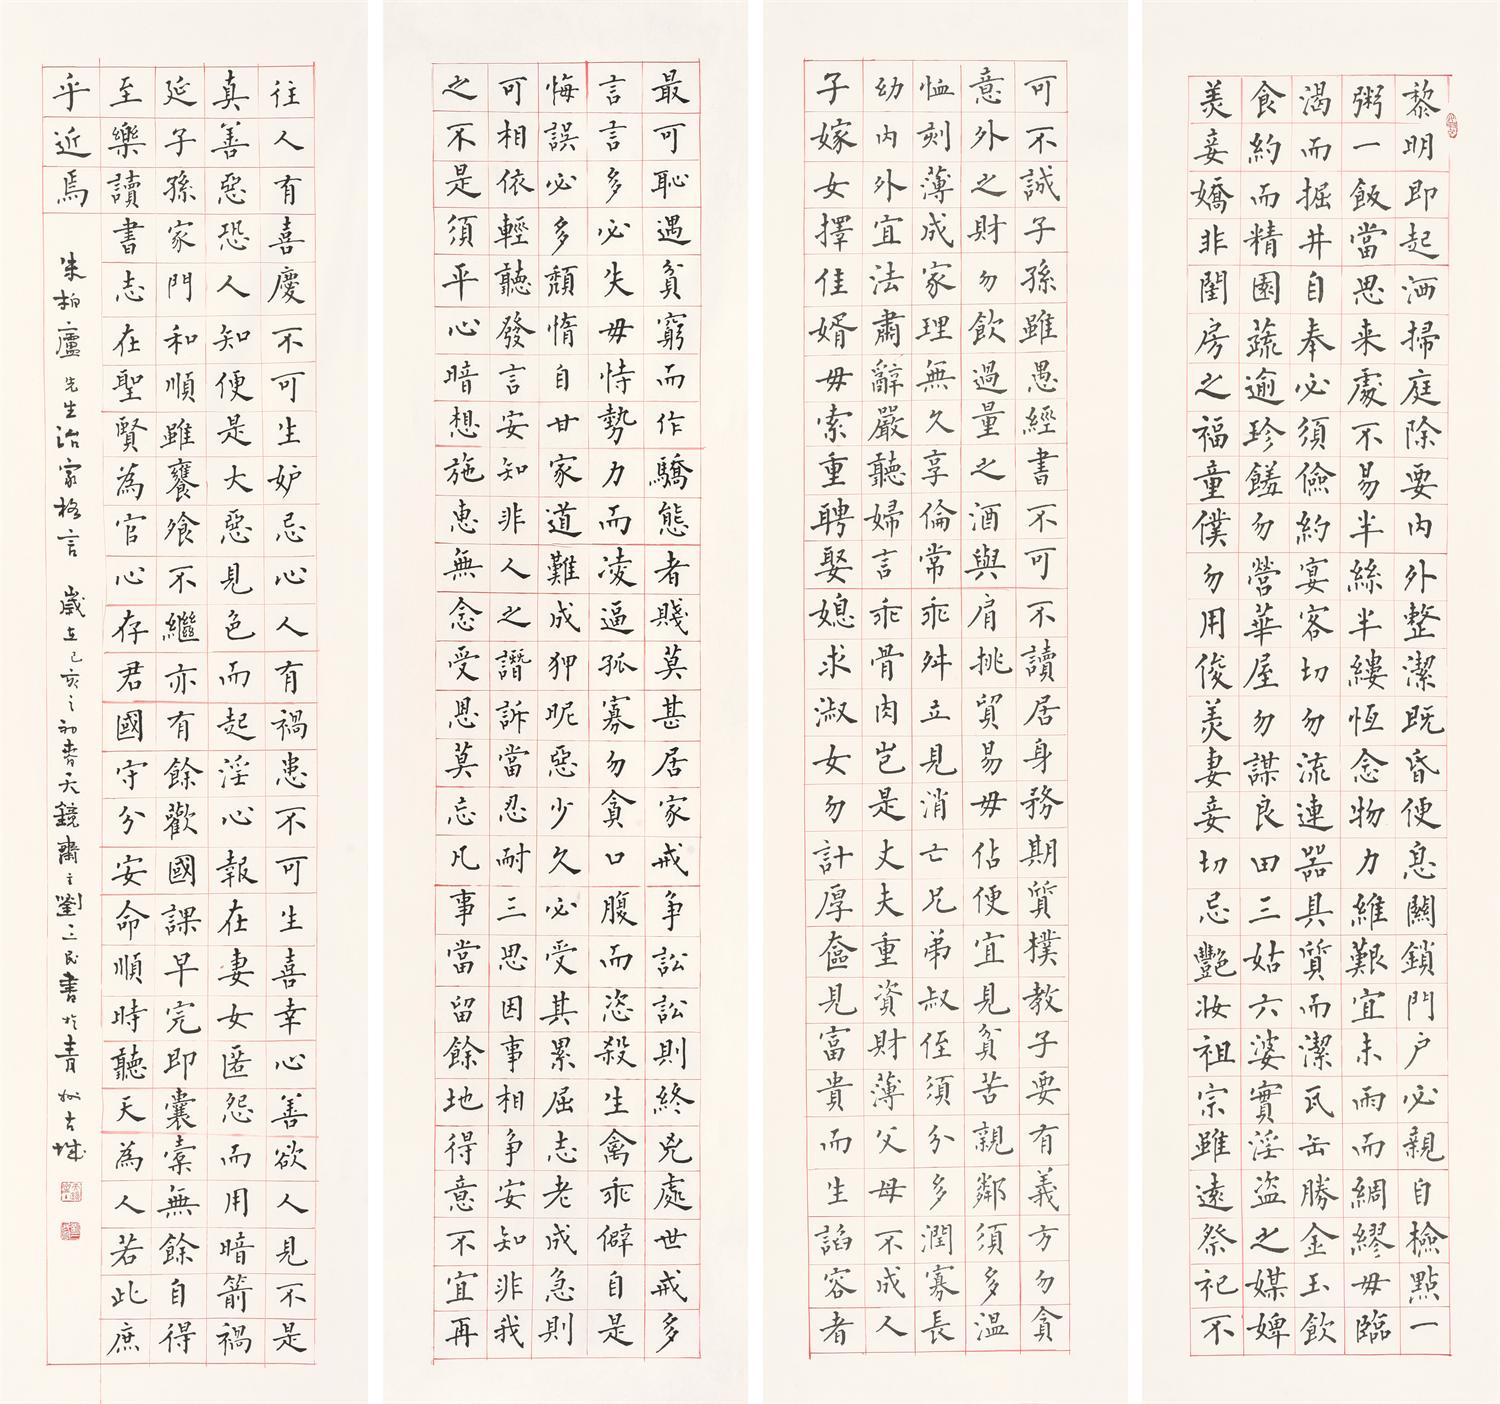 黎明即起洒掃庭除要内外整潔既昏便息關鎖門户必親自檢點一
粥一飯當思来處不易半絲半縷恆念物力維艱宜未雨而綢繆毋臨
渴而掘井自奉必須儉約宴客切勿流連器具質而潔瓦缶勝金玉飲
食約而精園蔬逾珍饈勿營華屋勿謀良田三姑六婆實淫盗之媒婢
美妾嬌非閨房之福童僕勿用俊美妻妾切忌艷妝祖宗雖遠祭祀不
可不誠子孫雖愚經書不可不讀居身務期質樸教子要有義方勿貪
意外之財勿飲過量之酒與肩挑貿易毋佔便宜見貧苦親鄰須多温
恤刻薄成家理無久享倫常乖舛立見消亡兄弟叔侄須分多潤寡長
幼内外宜法肅辭嚴聽婦言乖骨肉豈是丈夫重資財薄父母不成人
子嫁女擇佳婿毋索重聘娶媳求淑女勿計厚奩見富貴而生諂容者
最可恥遇貧窮而作驕態者賤莫甚居家戒争訟訟則終兇處世戒多
言言多必失毋恃勢力而凌逼孤寡勿貪口腹而恣殺生禽乖僻自是
悔誤必多頹惰自甘家道難成狎昵惡少久必受其累屈志老成急則
可相依輕聽發言安知非人之譖訴當忍耐三思因事相争安知非我
之不是須平心暗想施惠無念受恩莫忘凡事當留餘地得意不宜再
往人有喜慶不可生妒忌心人有禍患不可生喜幸心善欲人見不是
真善惡恐人知便是大惡見色而起淫心報在妻女匿怨而用暗箭禍
延子孫家門和順雖饔飧不繼亦有餘歡國課早完即囊橐無餘自得
至樂讀書志在聖賢為官心存君國守分安命順時聽天為人若此庶
乎近焉
朱柏廬先生治家格言 歲在己亥之初春天鏡齋主劉三民書於青州古城